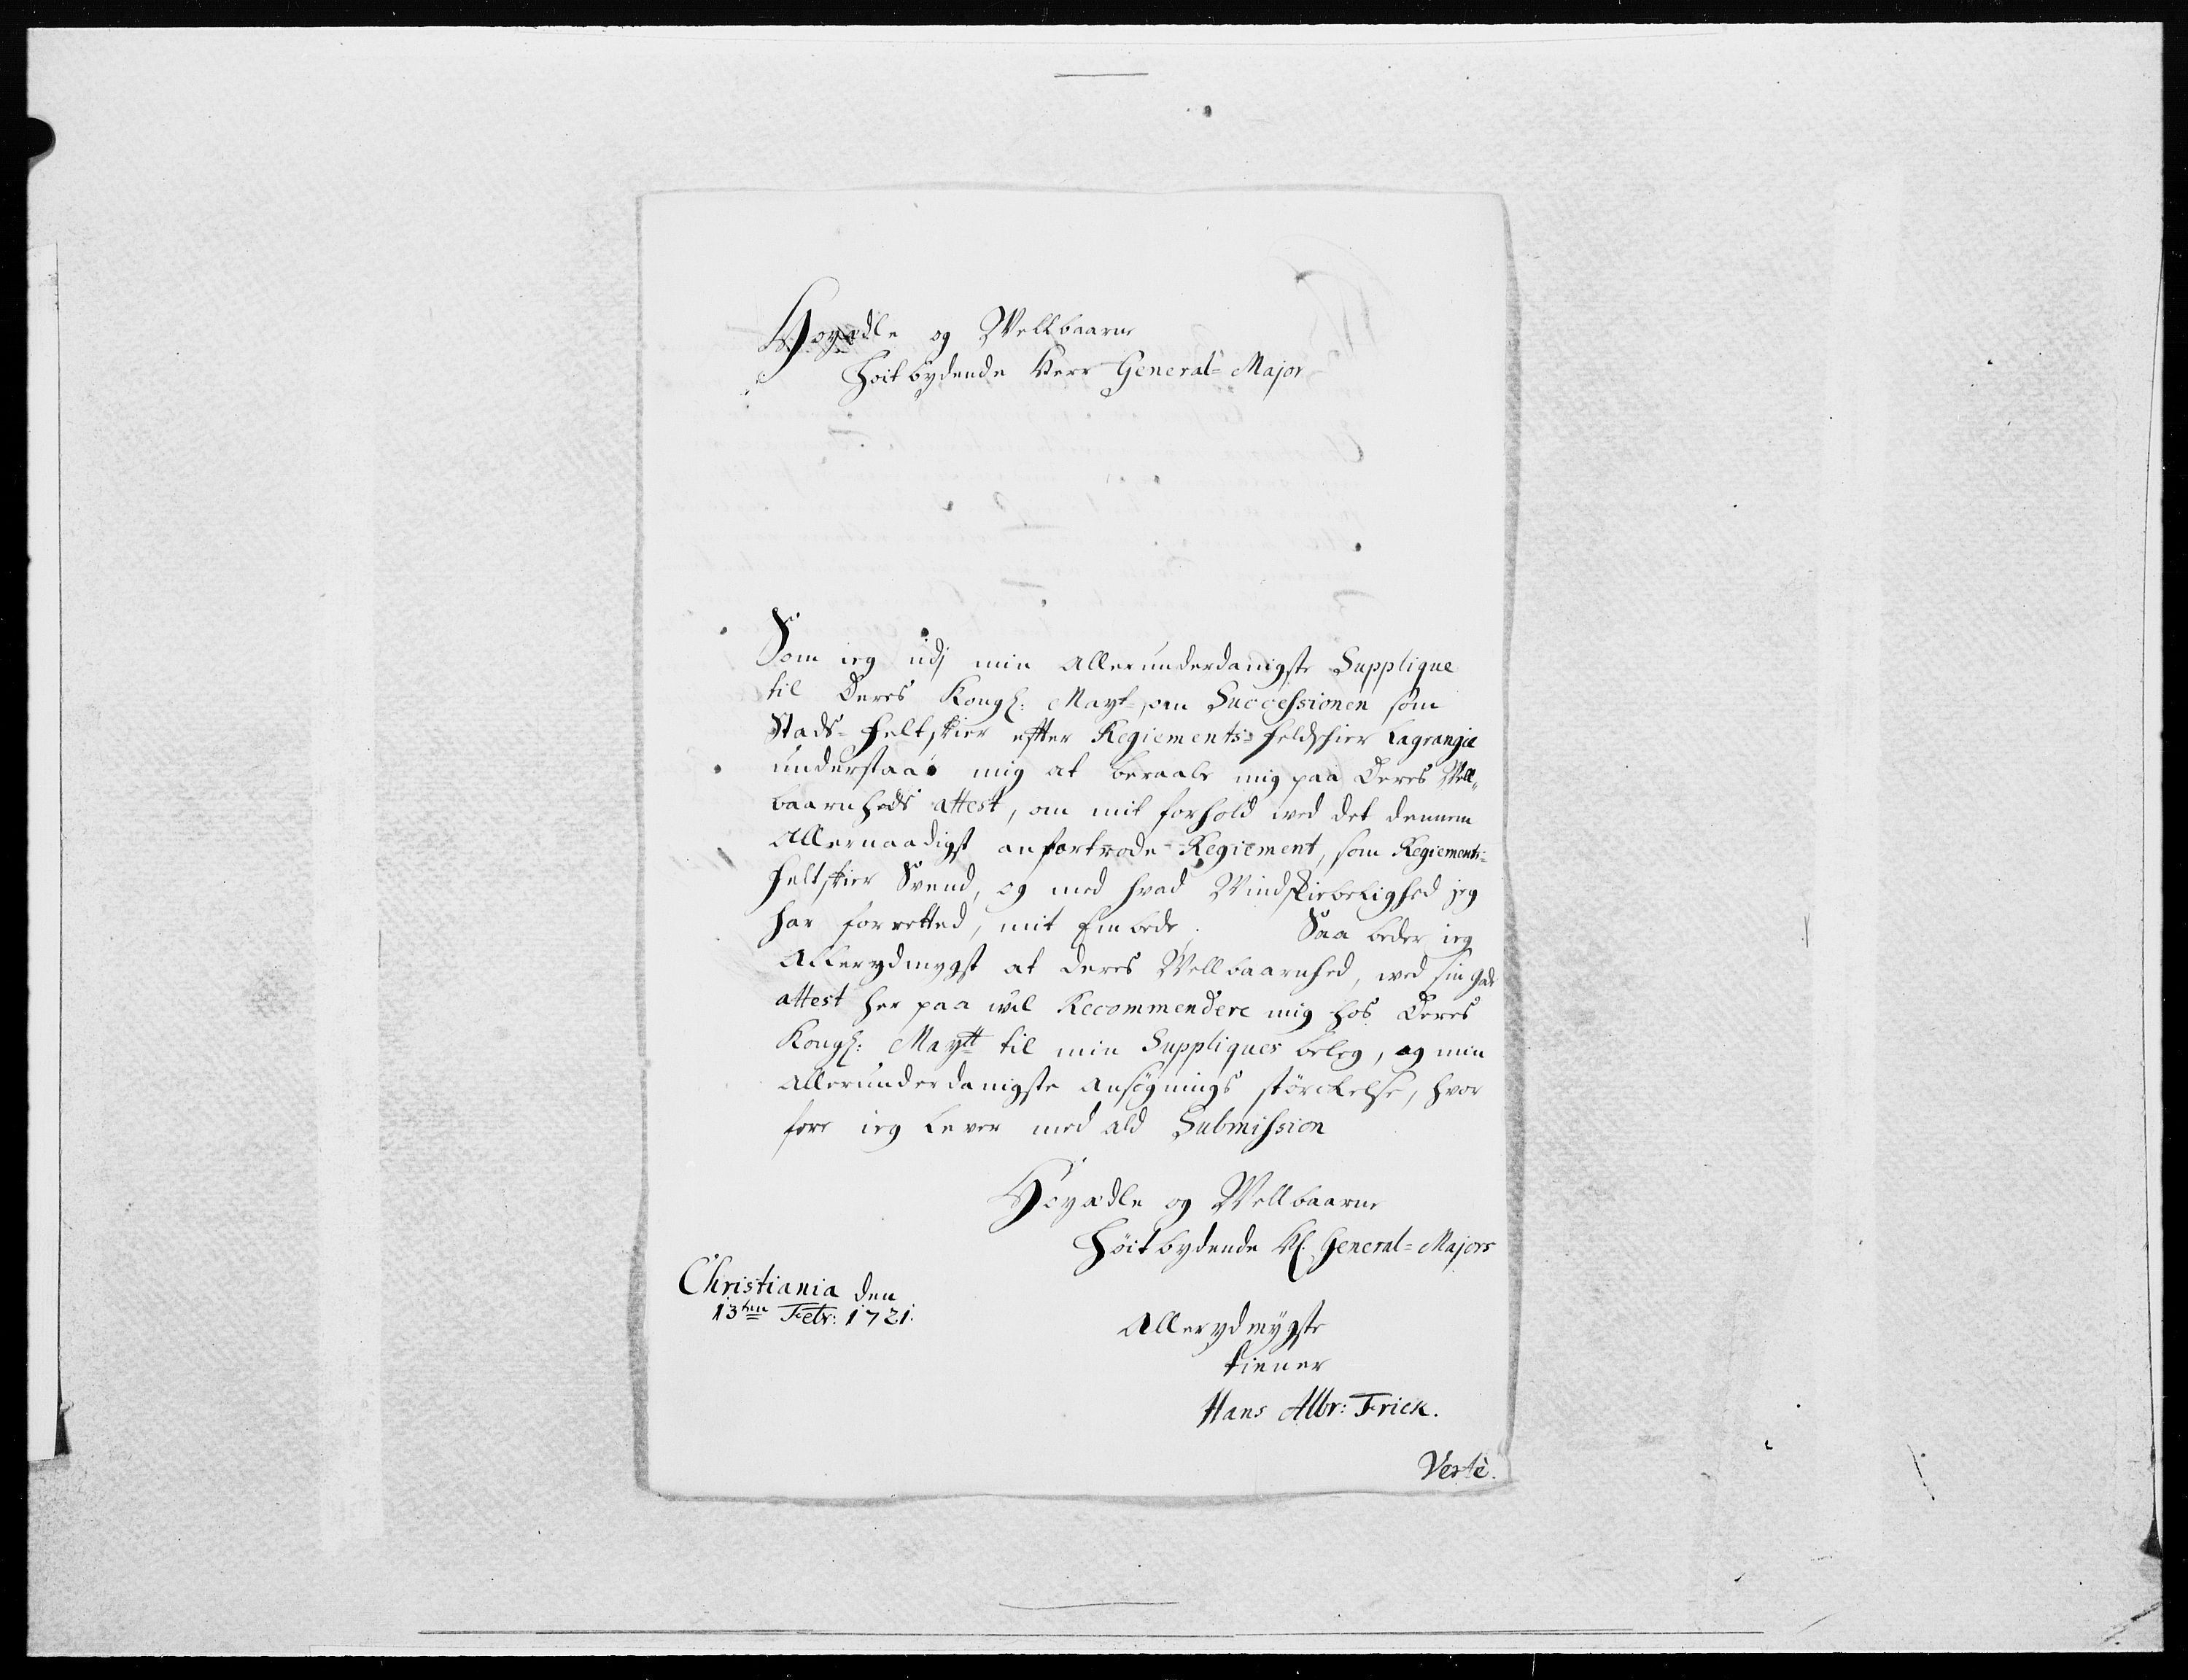 Høyædle og Wellbaarne
Høitbydende Herr General-Major
Som ieg udj min allerunderdanigste Supplique
til Deres Kongl: Mayt- om Successionen som
Stads-Feltskier efter Regiements-Feldskier Lagrangie
understaar mig at beraabe mig paa Deres Well-
baarnheds attest, om mit forhold ved det dennem
Allernaadigst anfortrode Regiement, som Regiements-
Feltskier Svend, og med hvad Windskibelighed jeg
har forretted, mit Embede. Saa beder ieg
Allerydmygst at deres Wellbaarnhed, ved sin gode
attest her paa wil Recommendere mig hos Deres
Kongl: Maytt til min Suppliques beleg, og min
Allerunderdanigste ansøgnings størckelse, hvor
fore ieg lever med ald Submission
Høyædle og Wellbaarne
Høitbydende Hr. General-Majors
Christiania den
13ten Febr: 1721.
Allerydmygste
tiener
Hans Albr: Frick.
Verte.